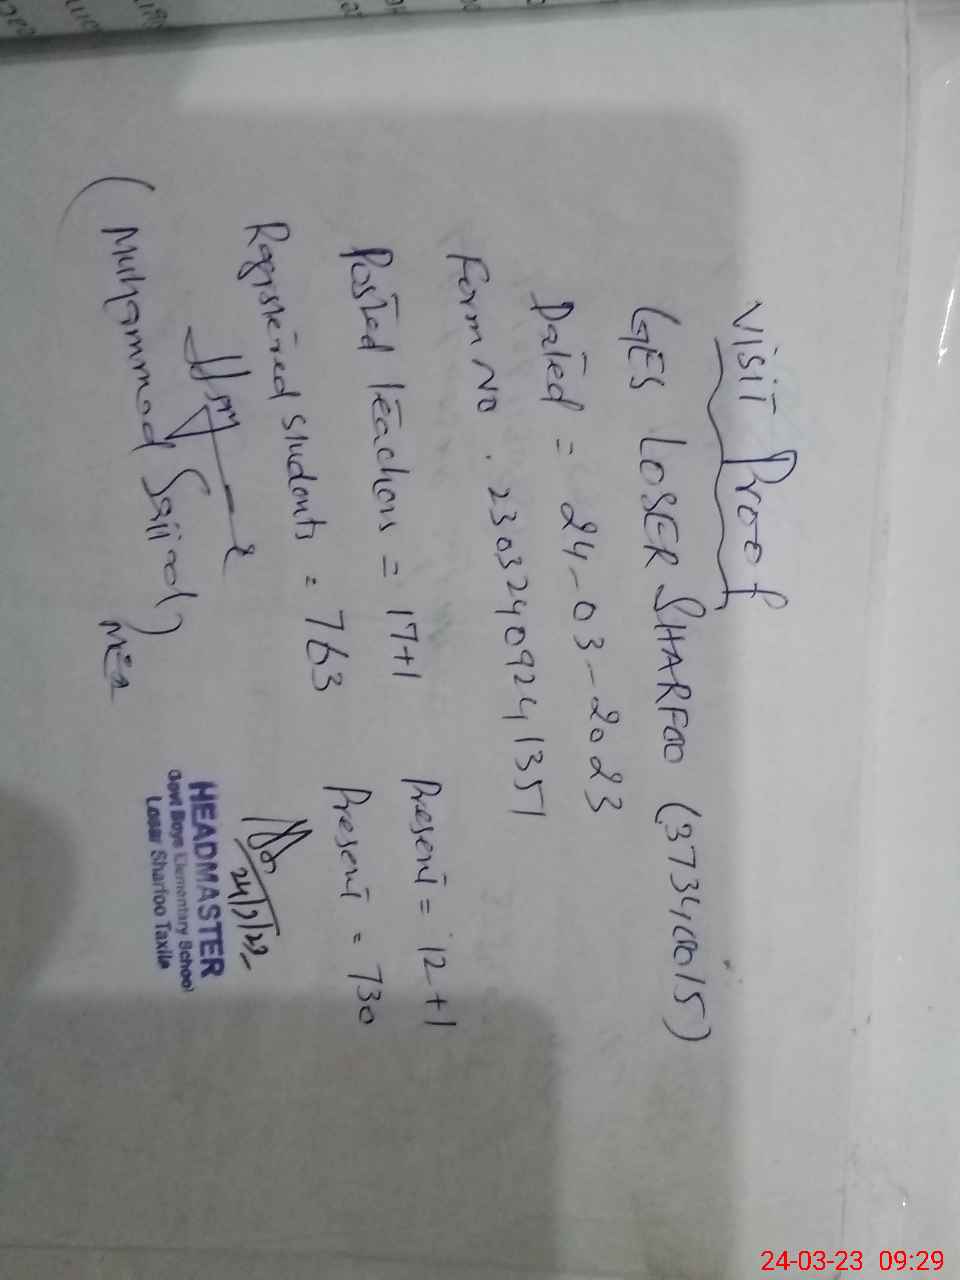 Visit Proof
GES LOSER SHARFOO (37340015)
Dated = 24-03-2023
Form No. 23032409241351
Posted teachers = 17+1 Present = 12+1
Registered students = 763 Present = 730
24/3/23
(Muhammad Sajjad)
MEA
HEADMASTER
Govt Boys Elementary School
Losar Sharfoo Taxila
24-03-23 09:29